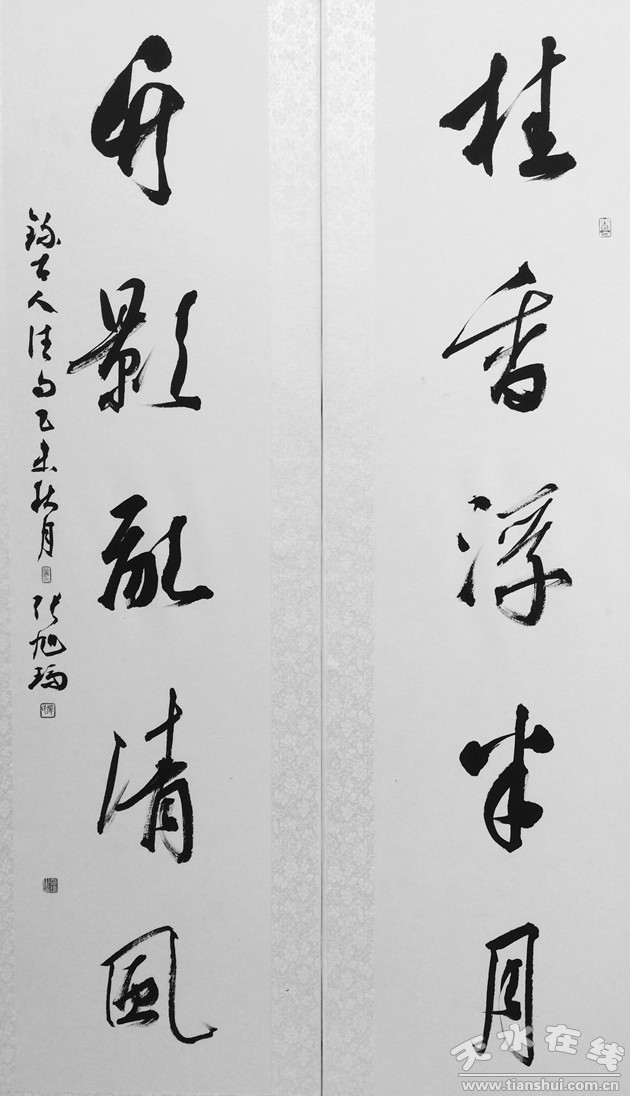 桂香浮半月
竹影亂清風
錄古人佳句乙未秋月
張旭
天水在线
www.tianshui.com.cn